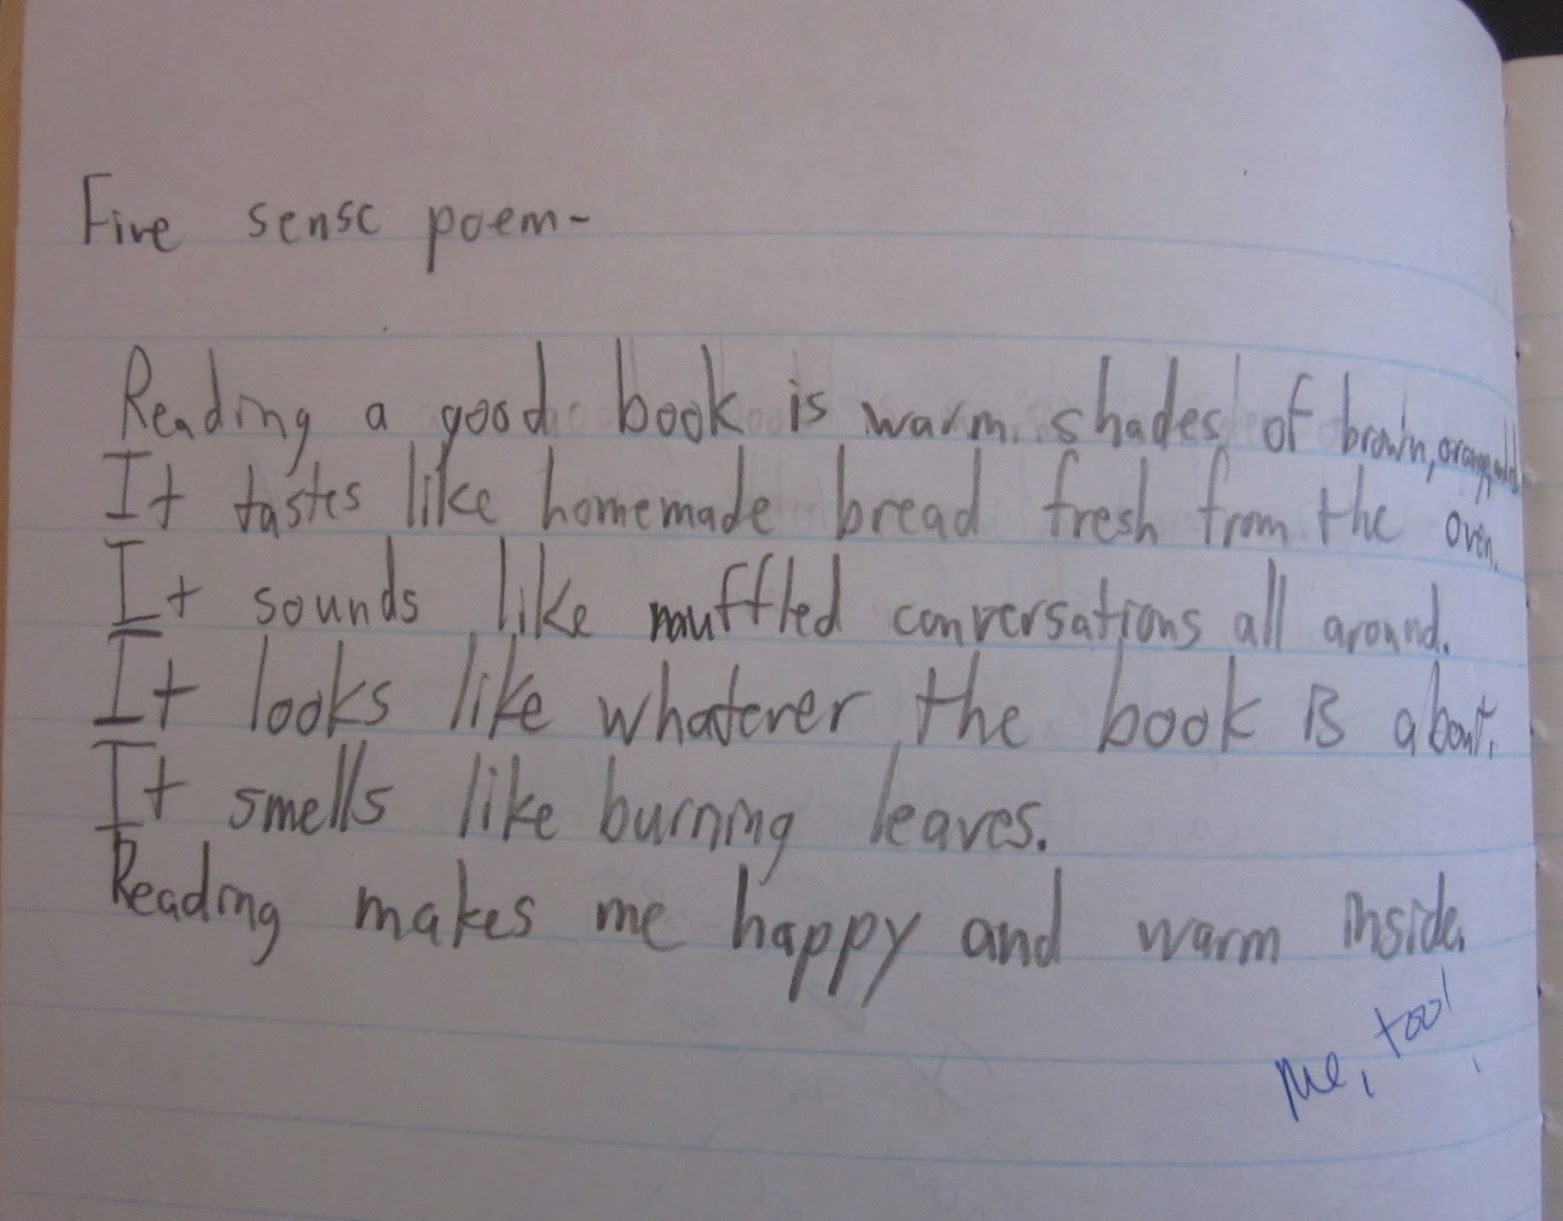 Five sense poem-
Reading a good book is warm shades of brown, orange,
It tastes like homemade bread fresh from the oven.
It sounds like muffled conversations all around.
It looks like whatever the book is about.
It smells like burning leaves.
Reading makes me happy and warm inside.
me, too!